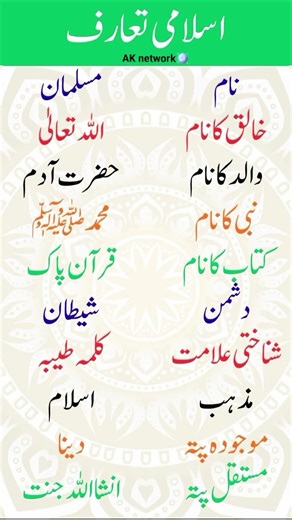 اسلامی تعارف
AK network
نام مسلمان
خالق کا نام اللہ تعالیٰ
والد کا نام حضرت آدم
نبی کا نام محمد ﷺ
کتاب کا نام قرآن پاک
دشمن شیطان
شناختی علامت کلمہ طیبہ
مذہب اسلام
موجودہ پتہ دینا
مستقل پتہ انشااللہ جنت